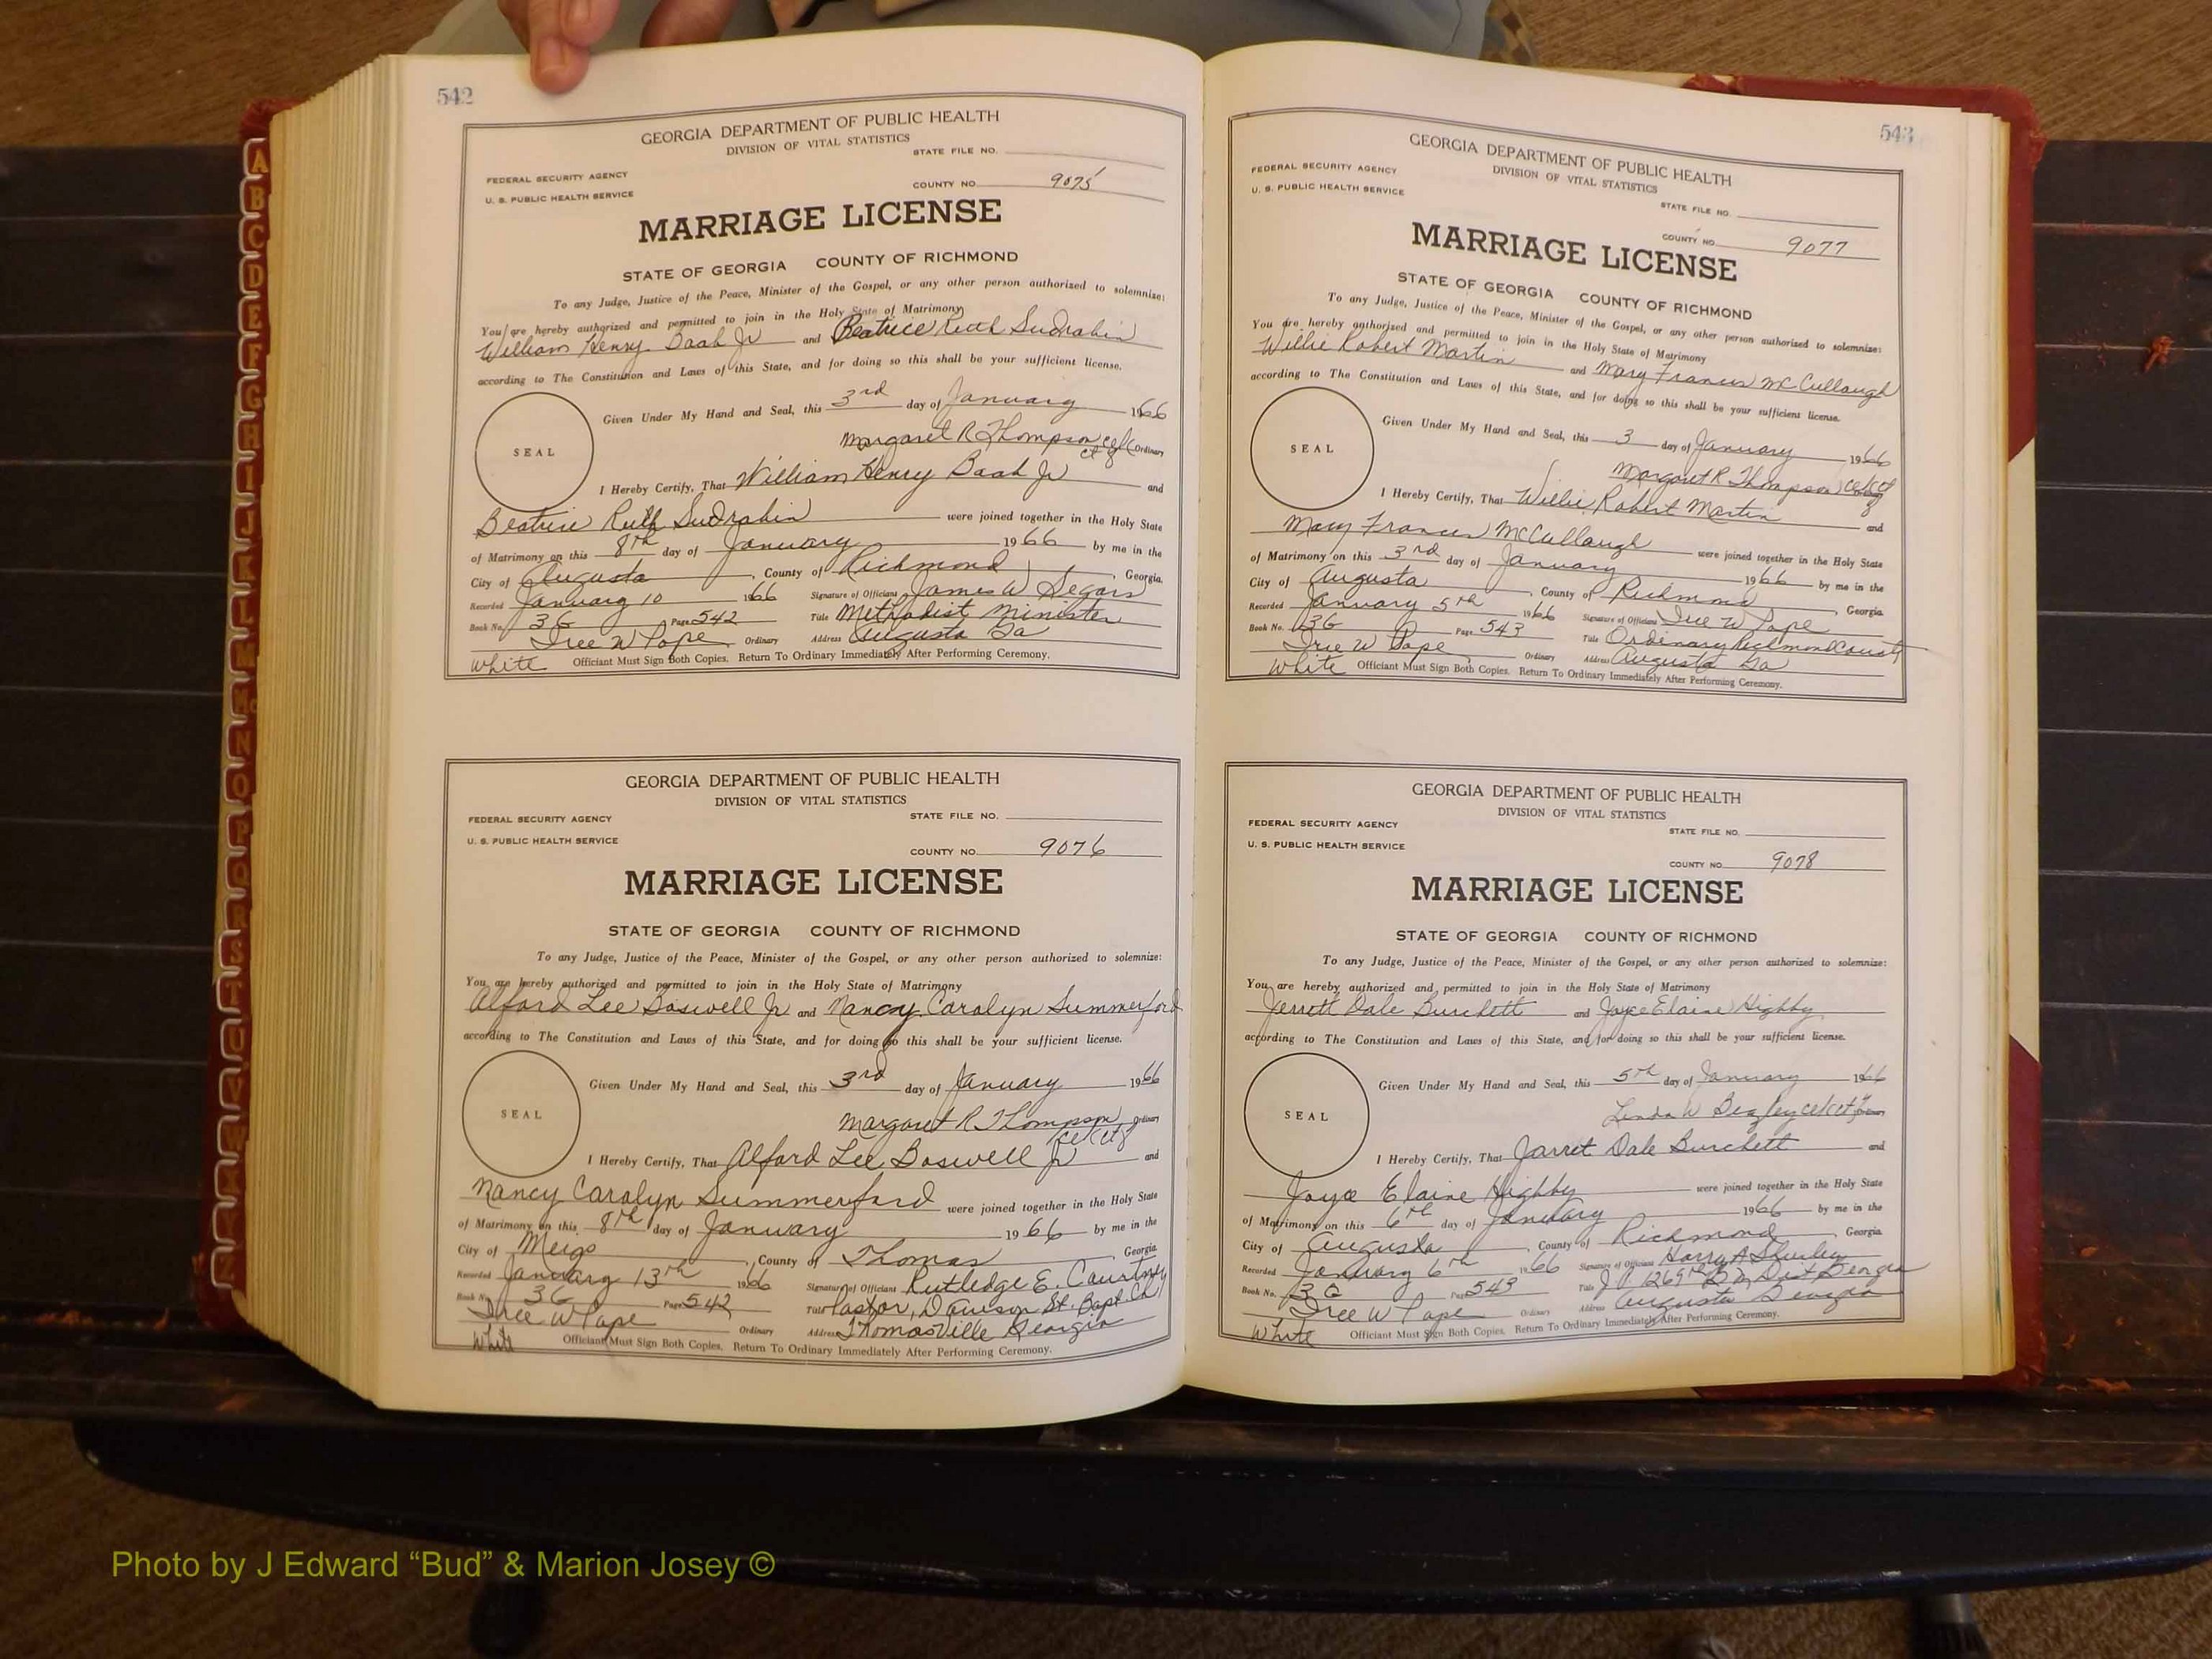 542
GEORGIA DEPARTMENT OF PUBLIC HEALTH
DIVISION OF VITAL STATISTICS
STATE FILE NO.
FEDERAL SECURITY AGENCY
U. S. PUBLIC HEALTH SERVICE
COUNTY NO. 9075
MARRIAGE LICENSE
STATE OF GEORGIA COUNTY OF RICHMOND
To any Judge, Justice of the Peace, Minister of the Gospel, or any other person authorized to solemnize:
You are hereby authorized and permitted to join in the Holy State of Matrimony
William Henry Baab Jr and Beatrice Ruth Sudrabin
according to The Constitution and Laws of this State, and for doing so this shall be your sufficient license.
Given Under My Hand and Seal, this 3rd day of January 1966
SEAL
Margaret R Thompson Ordinary
I Hereby Certify, That William Henry Baab Jr and
Beatrice Ruth Sudrabin were joined together in the Holy State
of Matrimony on this 8th day of January 1966 by me in the
City of Augusta, County of Richmond, Georgia.
Recorded January 10 1966 Signature of Officiant James W Segars
Book No. 3G Page 542 Title Methodist Minister
Iree W Pope Ordinary Address Augusta Ga
White Officiant Must Sign Both Copies. Return To Ordinary Immediately After Performing Ceremony.
GEORGIA DEPARTMENT OF PUBLIC HEALTH
DIVISION OF VITAL STATISTICS
STATE FILE NO.
FEDERAL SECURITY AGENCY
U. S. PUBLIC HEALTH SERVICE
COUNTY NO. 9076
MARRIAGE LICENSE
STATE OF GEORGIA COUNTY OF RICHMOND
To any Judge, Justice of the Peace, Minister of the Gospel, or any other person authorized to solemnize:
You are hereby authorized and permitted to join in the Holy State of Matrimony
Alford Lee Boswell Jr and Nancy Carolyn Summerford
according to The Constitution and Laws of this State, and for doing so this shall be your sufficient license.
Given Under My Hand and Seal, this 3rd day of January 1966
SEAL
Margaret R Thompson Ordinary
I Hereby Certify, That Alford Lee Boswell Jr and
Nancy Carolyn Summerford were joined together in the Holy State
of Matrimony on this 8th day of January 1966 by me in the
City of Meigs, County of Thomas, Georgia
Recorded January 13th 1966 Signature of Officiant Rutledge E. Courtney
Book No. 3G Page 542 Title Pastor, Dawson St. Bapt. Ch
Iree W Pope Ordinary Address Thomasville Georgia
White Officiant Must Sign Both Copies. Return To Ordinary Immediately After Performing Ceremony.
543
GEORGIA DEPARTMENT OF PUBLIC HEALTH
DIVISION OF VITAL STATISTICS
FEDERAL SECURITY AGENCY
U. S. PUBLIC HEALTH SERVICE
STATE FILE NO.
COUNTY NO. 9077
MARRIAGE LICENSE
STATE OF GEORGIA COUNTY OF RICHMOND
To any Judge, Justice of the Peace, Minister of the Gospel, or any other person authorized to solemnize:
You are hereby authorized and permitted to join in the Holy State of Matrimony
Willie Robert Martin and Mary Frances McCullaugh
according to The Constitution and Laws of this State, and for doing so this shall be your sufficient license.
Given Under My Hand and Seal, this 3 day of January 1966
SEAL
Margaret R Thompson
I Hereby Certify, That Willie Robert Martin and
Mary Frances McCullaugh were joined together in the Holy State
of Matrimony on this 3rd day of January 1966 by me in the
City of Augusta, County of Richmond, Georgia
Recorded January 5th 1966 Signature of Officiant Iree W Pope
Book No. 3G Page 543 Title Ordinary Richmond County
Iree W Pope Ordinary Address Augusta Ga
White Officiant Must Sign Both Copies. Return To Ordinary Immediately After Performing Ceremony.
GEORGIA DEPARTMENT OF PUBLIC HEALTH
DIVISION OF VITAL STATISTICS
FEDERAL SECURITY AGENCY
STATE FILE NO.
U. S. PUBLIC HEALTH SERVICE
COUNTY NO. 9078
MARRIAGE LICENSE
STATE OF GEORGIA COUNTY OF RICHMOND
To any Judge, Justice of the Peace, Minister of the Gospel, or any other person authorized to solemnize:
You are hereby authorized and permitted to join in the Holy State of Matrimony
Jerrett Dale Burchett and Joyce Elaine Highby
according to The Constitution and Laws of this State, and for doing so this shall be your sufficient license.
Given Under My Hand and Seal, this 5th day of January 1966
SEAL
Linda W Begley
I Hereby Certify, That Jarret Dale Burchett and
Joyce Elaine Highby were joined together in the Holy State
of Matrimony on this 6th day of January 1966 by me in the
City of Augusta, County of Richmond, Georgia
Recorded January 6th 1966 Signature of Officiant Harry A Shurley
Book No. 3G Page 543 Title J P 1269th Dist Georgia
Iree W Pope Ordinary Address Augusta Georgia
White Officiant Must Sign Both Copies. Return To Ordinary Immediately After Performing Ceremony.
A
B
C
D
E
F
G
H
I
J
K
L
M
Mc
N
O
P
Q
R
S
T
U
V
W
X
Y
Z
Photo by J Edward “Bud” & Marion Josey ©